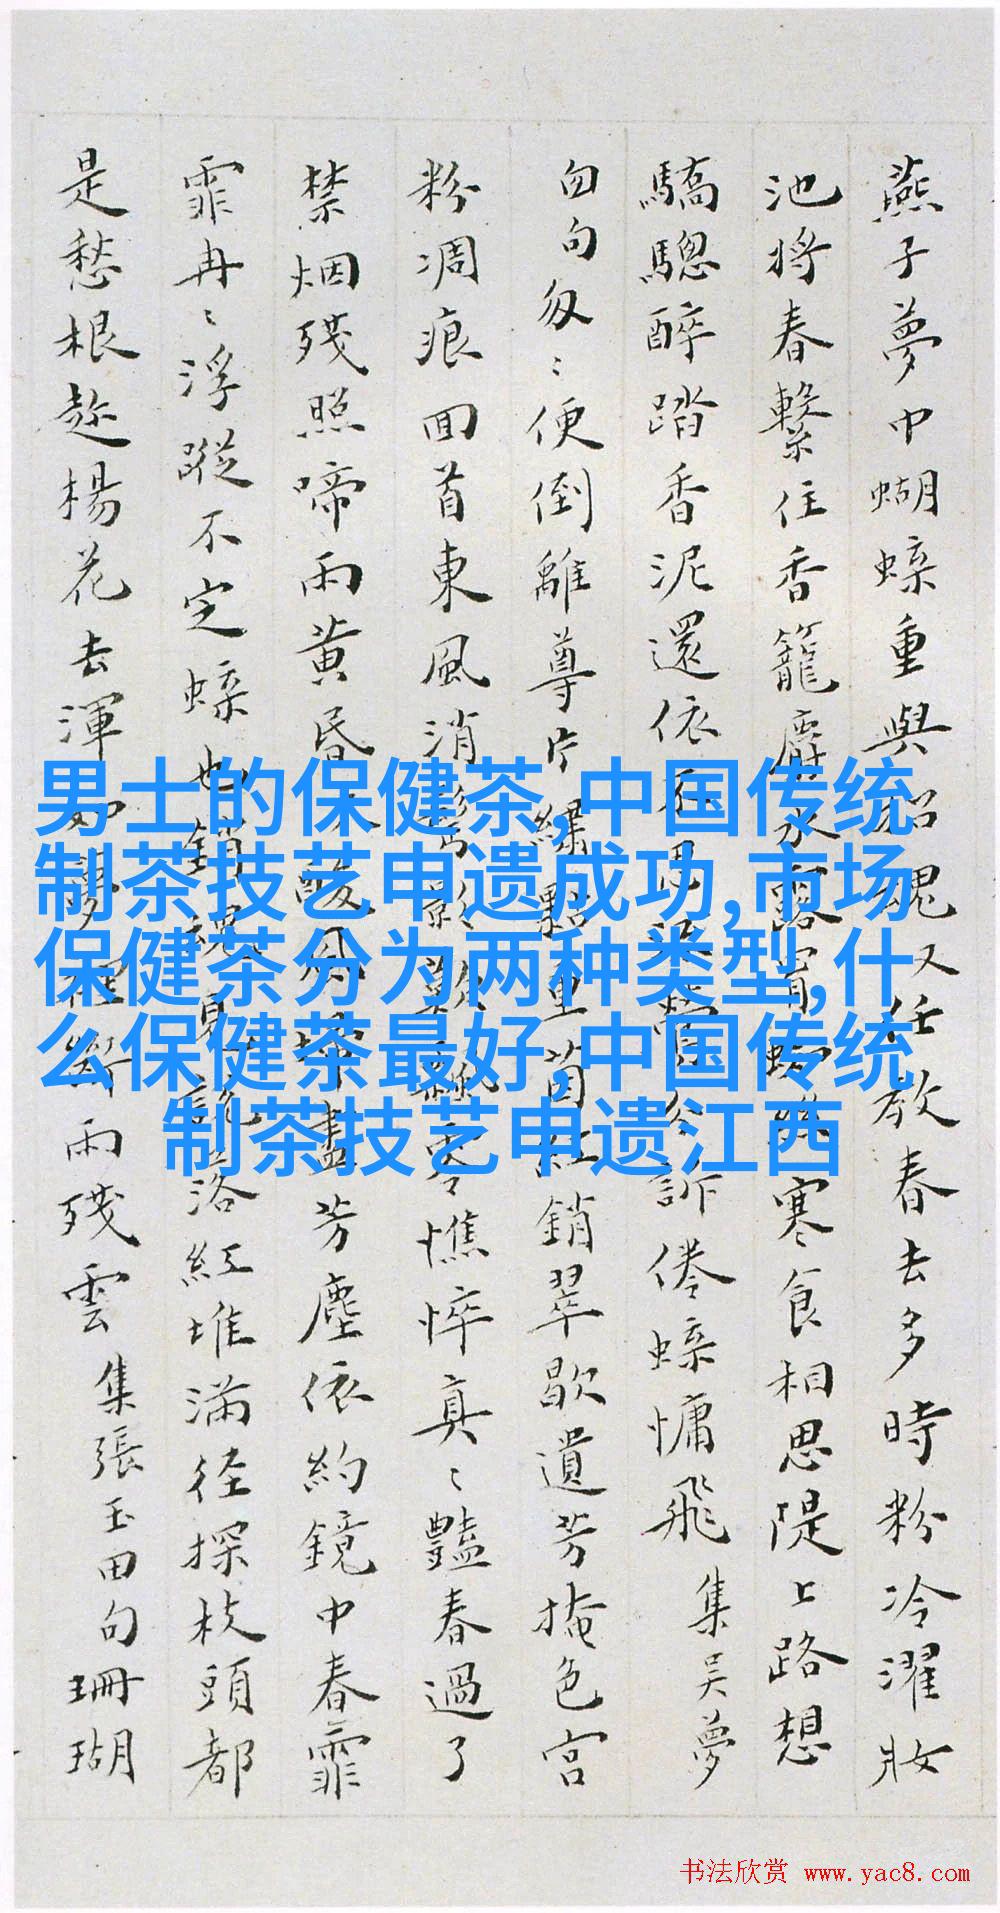 燕子夢中蝴蜨重與招魂又任教春去多時粉冷濯妝
池将春繫住香籠麝水寒食相思隄上路想
驕驄醉踏香泥還依不訴倦蜨慵飛 集吴夢
囱句匆〻便倒離尊片繡點重茵紅銷翠歇遺芳掩色宫
粉凋痕回首東風消零憔悴真〻豔春過了
禁烟殘照啼雨黄昏盡芳塵依約鏡中春霏
霏冉〻浮蹤不定蜨也銷魂落紅堆滿径探枝頭都
是愁根趂楊花去渾如夢斷雨殘雲 集張玉田句珊瑚
男士的保健茶,中国传统
制茶技艺申遗成功,市场
保健茶分为两种类型,什
么保健茶最好,中国传统
制茶技艺申遗江西
书法欣赏 www.yac8.com